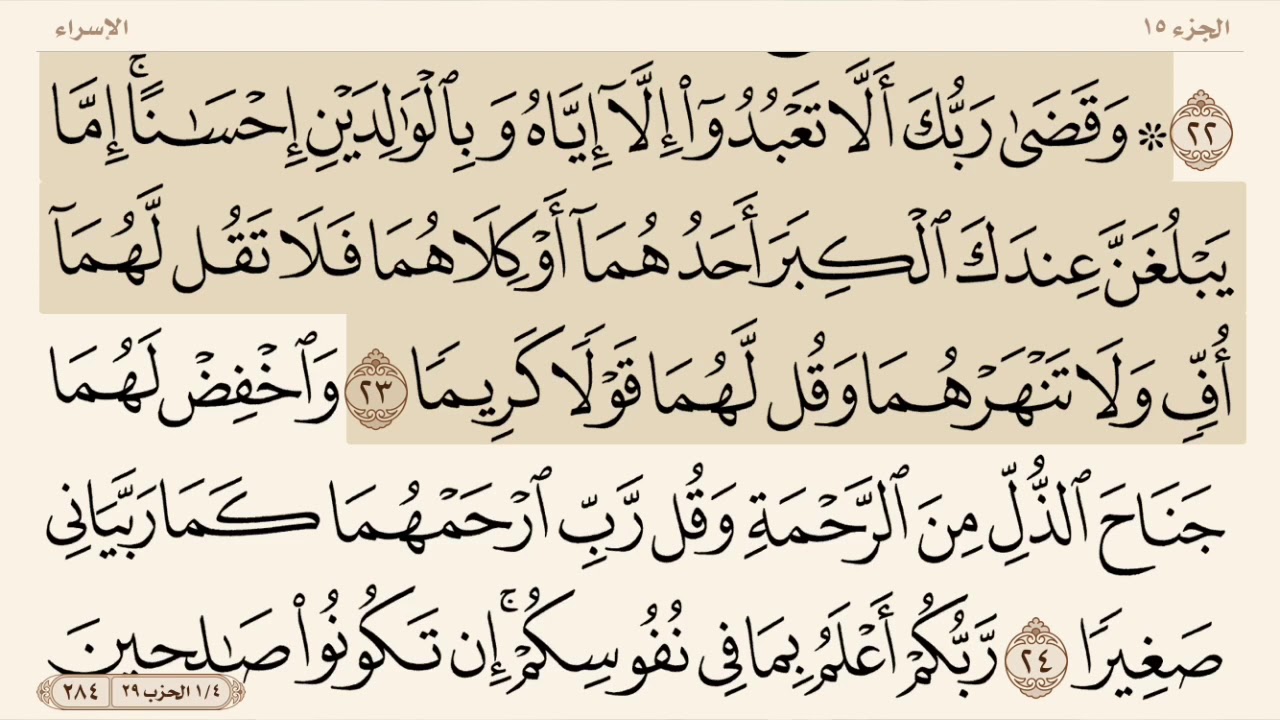 الجزء ١٥ الإسراء
٢٢ ۞ وَقَضَىٰ رَبُّكَ أَلَّا تَعْبُدُوٓا۟ إِلَّآ إِيَّاهُ وَبِٱلْوَٰلِدَيْنِ إِحْسَـٰنًا ۚ إِمَّا
يَبْلُغَنَّ عِندَكَ ٱلْكِبَرَ أَحَدُهُمَآ أَوْ كِلَاهُمَا فَلَا تَقُل لَّهُمَآ
أُفٍّ وَلَا تَنْهَرْهُمَا وَقُل لَّهُمَا قَوْلًا كَرِيمًا ٢٣ وَٱخْفِضْ لَهُمَا
جَنَاحَ ٱلذُّلِّ مِنَ ٱلرَّحْمَةِ وَقُل رَّبِّ ٱرْحَمْهُمَا كَمَا رَبَّيَانِى
صَغِيرًا ٢٤ رَّبُّكُمْ أَعْلَمُ بِمَا فِى نُفُوسِكُمْ ۚ إِن تَكُونُوا۟ صَـٰلِحِينَ
١/٤ الحزب ٢٩ ٢٨٤